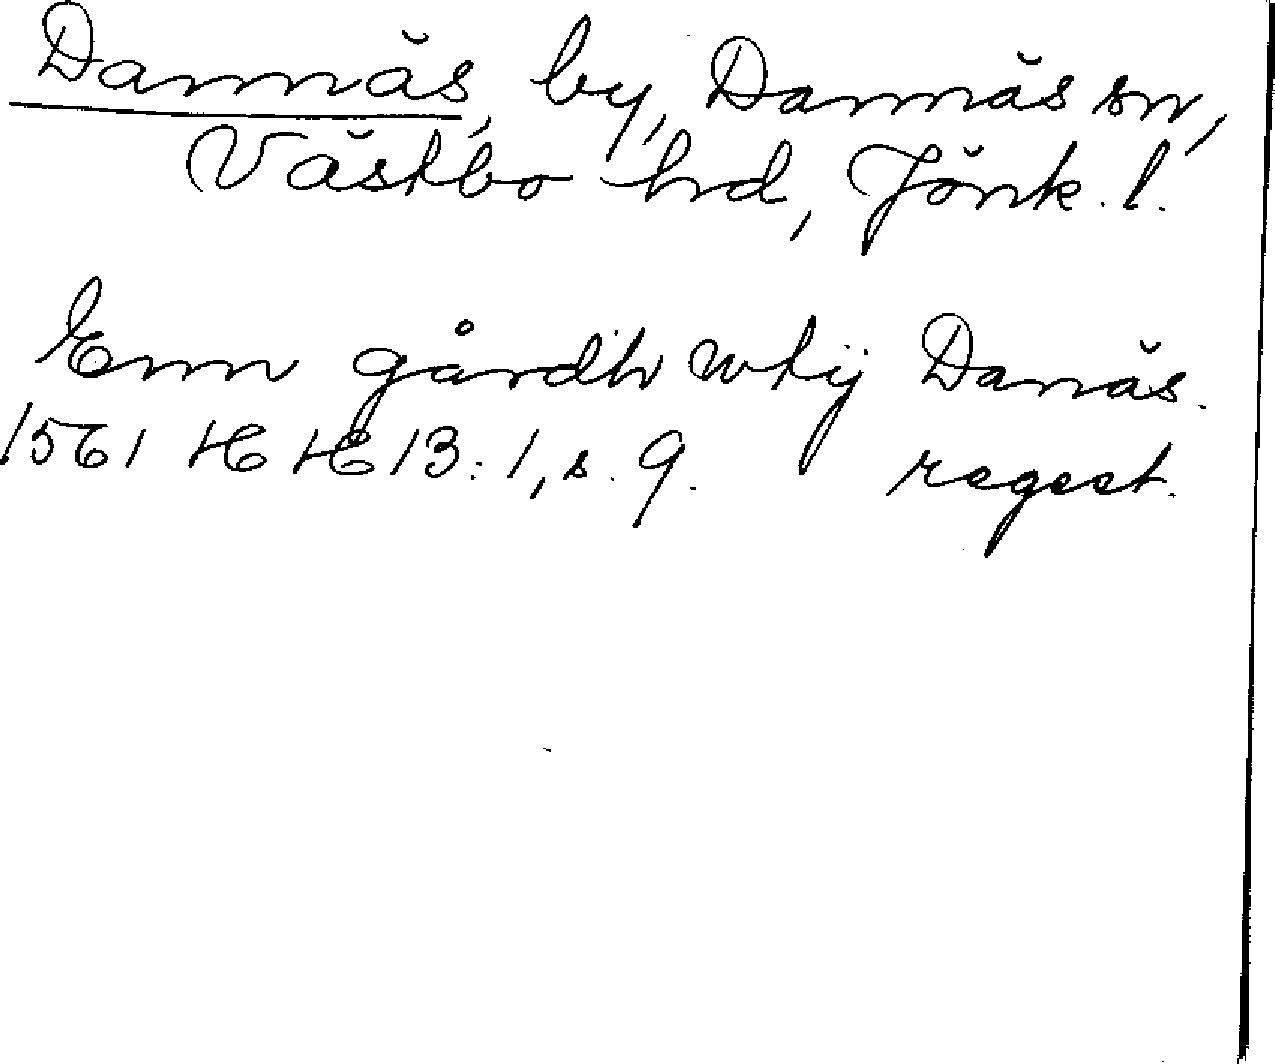 Dannäs, by, Dannäs sn,
Västbo hd, Jönk. l.
Enn gårdh wtij Danäs.
1561 HH 13:1, s. 9. regest.